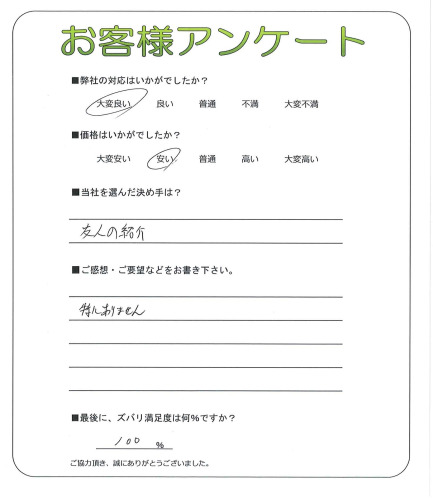 お客様アンケート
■弊社の対応はいかがでしたか？
大変良い 良い 普通 不満 大変不満
■価格はいかがでしたか？
大変安い 安い 普通 高い 大変高い
■当社を選んだ決め手は？
友人の紹介
■ご感想・ご要望などをお書き下さい。
特にありません
■最後に、ズバリ満足度は何％ですか？
100 ％
ご協力頂き、誠にありがとうございました。